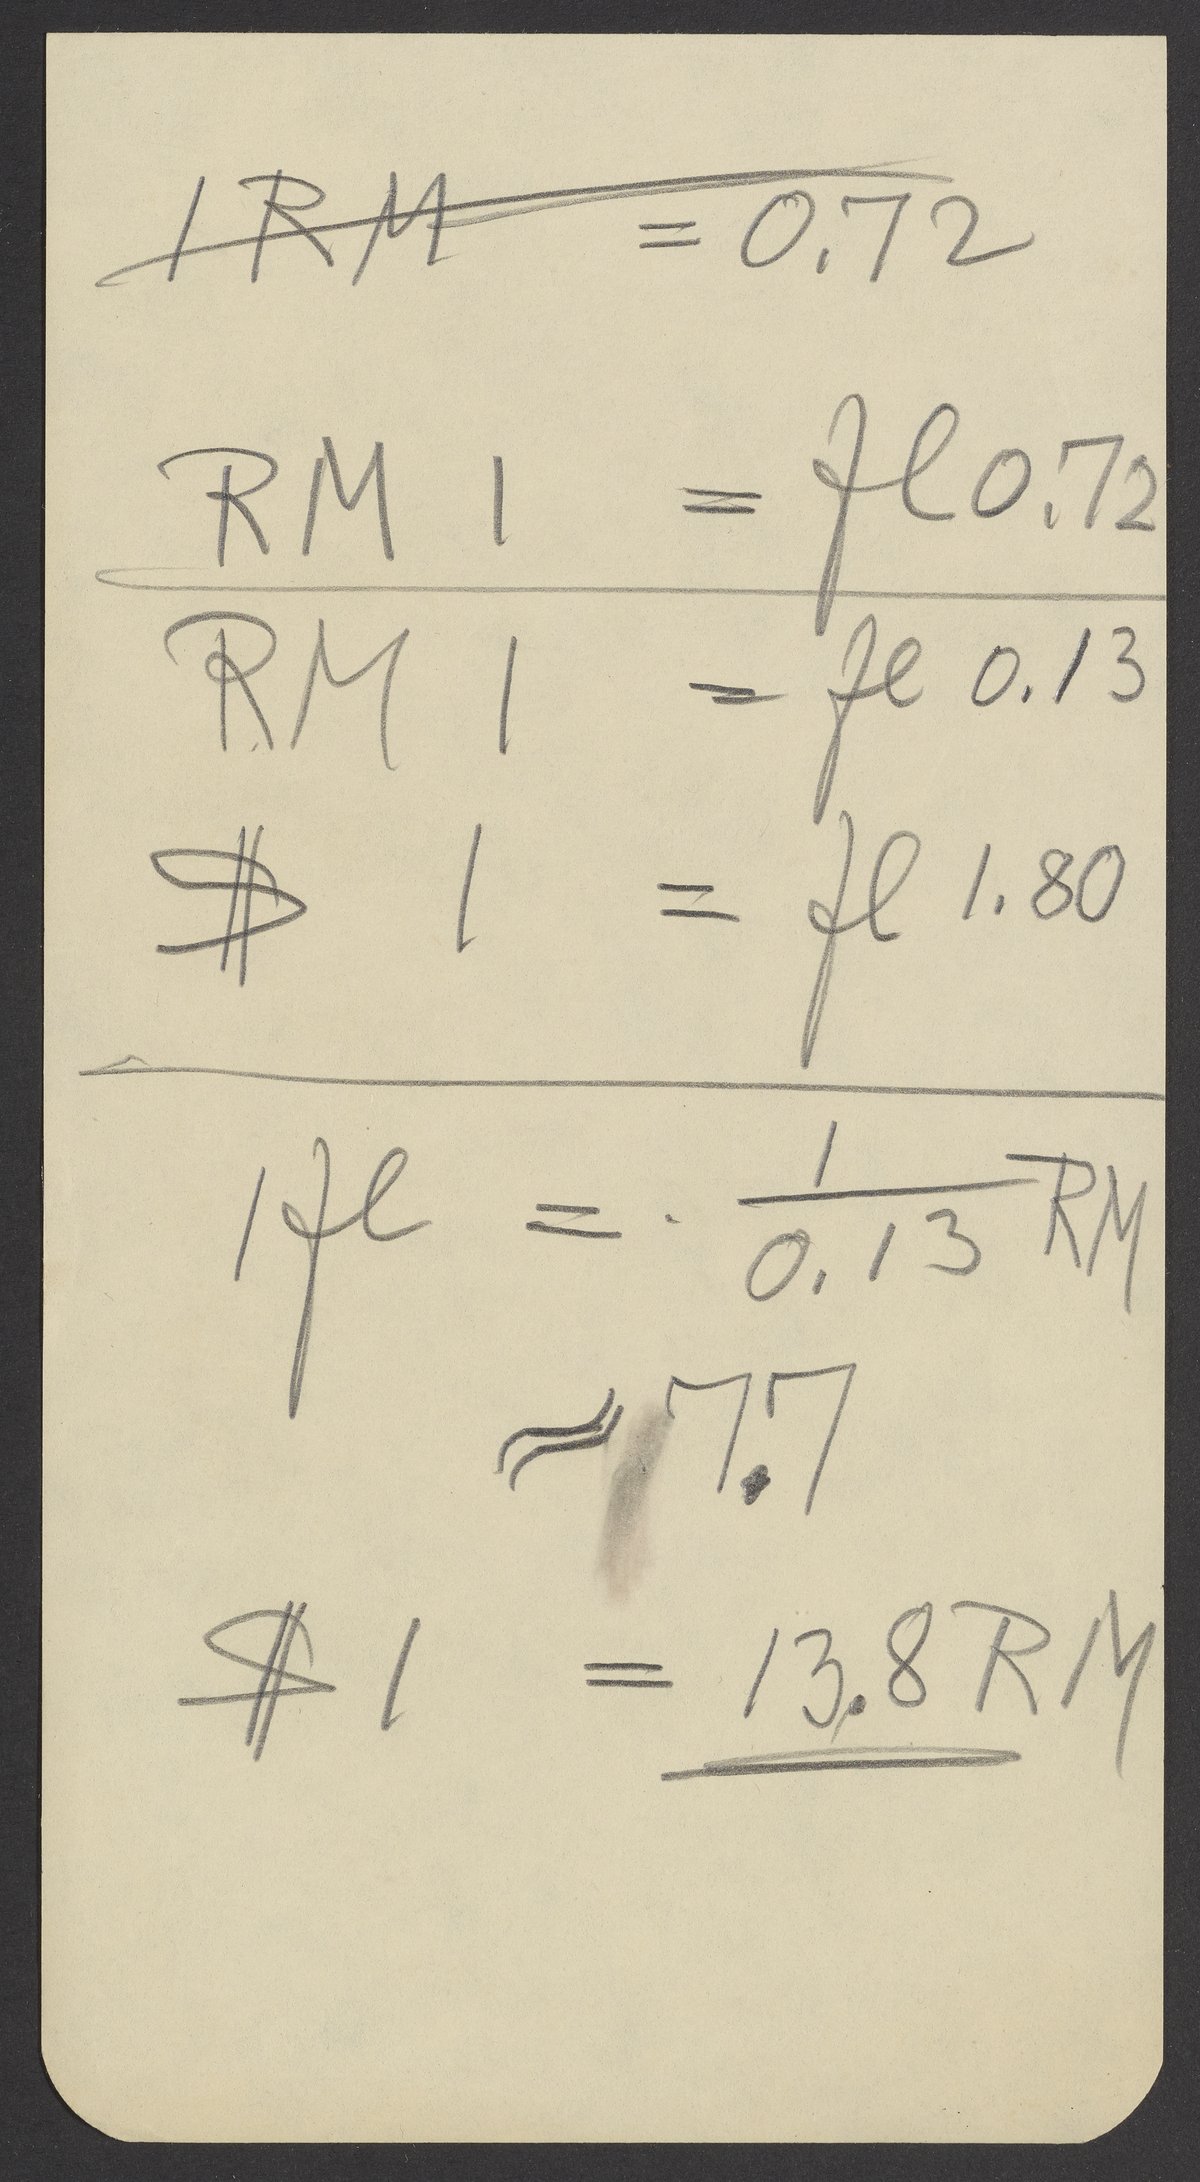 1 RM = 0.72
RM 1 = fl 0.72
RM 1 = fl 0.13
$ 1 = fl 1.80
1 fl = 1/0.13 RM
≈ 7.7
$ 1 = 13.8 RM